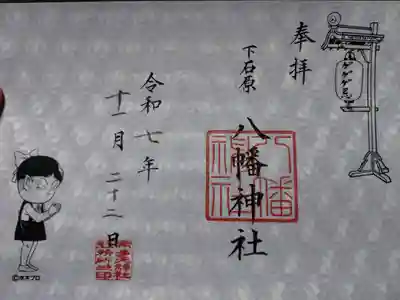 奉拝
下石原
八幡神社
八幡神社
令和七年
十一月二十二日
ゲゲゲ忌
©水木プロ